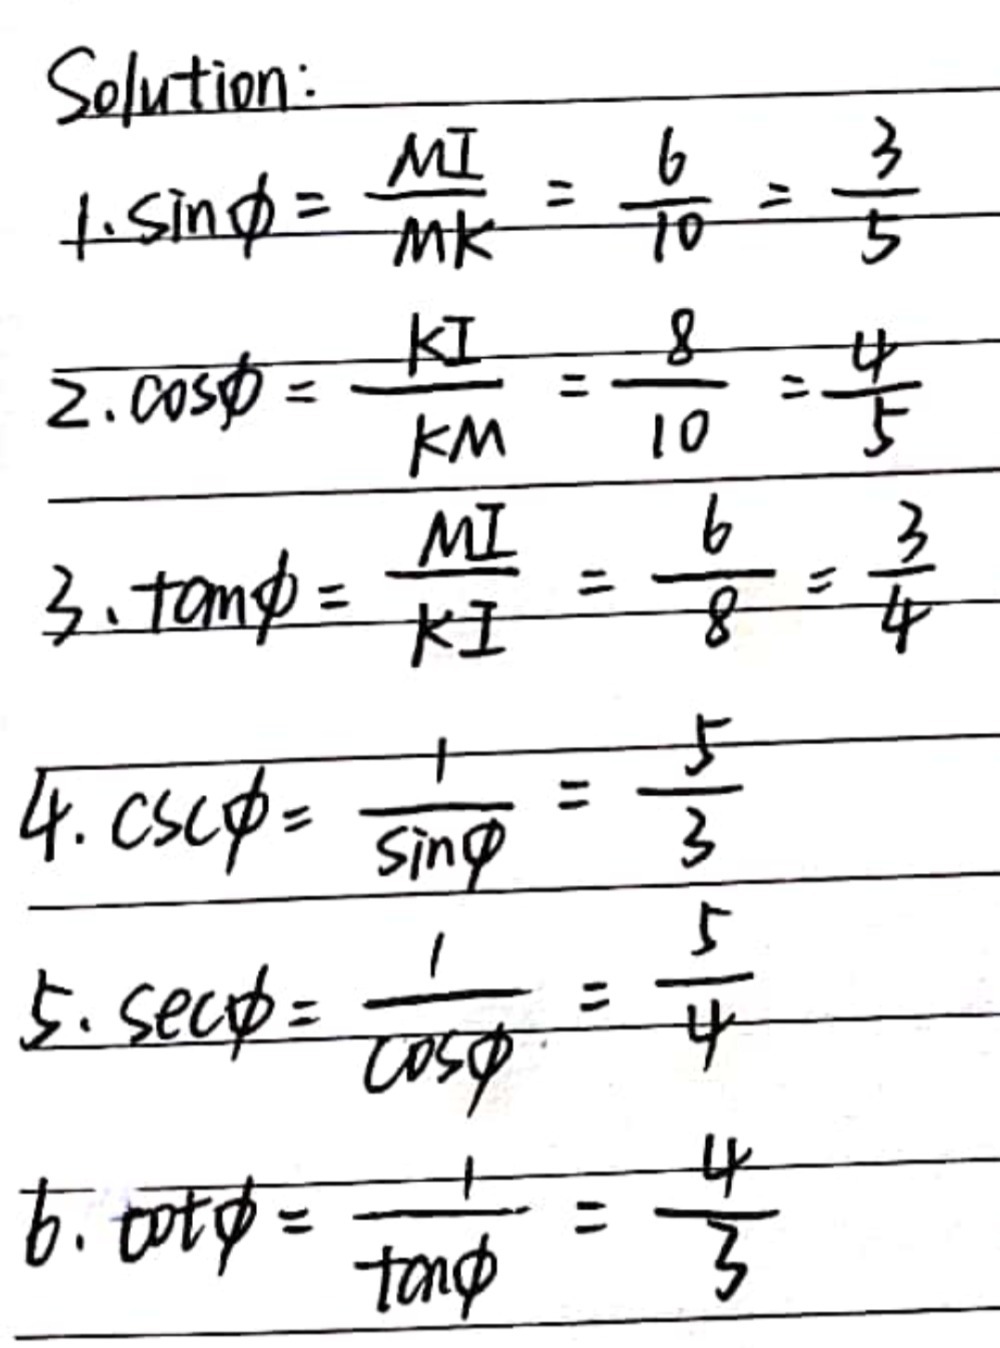 Solution:
1. sinϕ = MI/MK = 6/10 = 3/5
2. cosϕ = KI/KM = 8/10 = 4/5
3. tanϕ = MI/KI = 6/8 = 3/4
4. cscϕ = 1/sinϕ = 5/3
5. secϕ = 1/cosϕ = 5/4
6. cotϕ = 1/tanϕ = 4/3